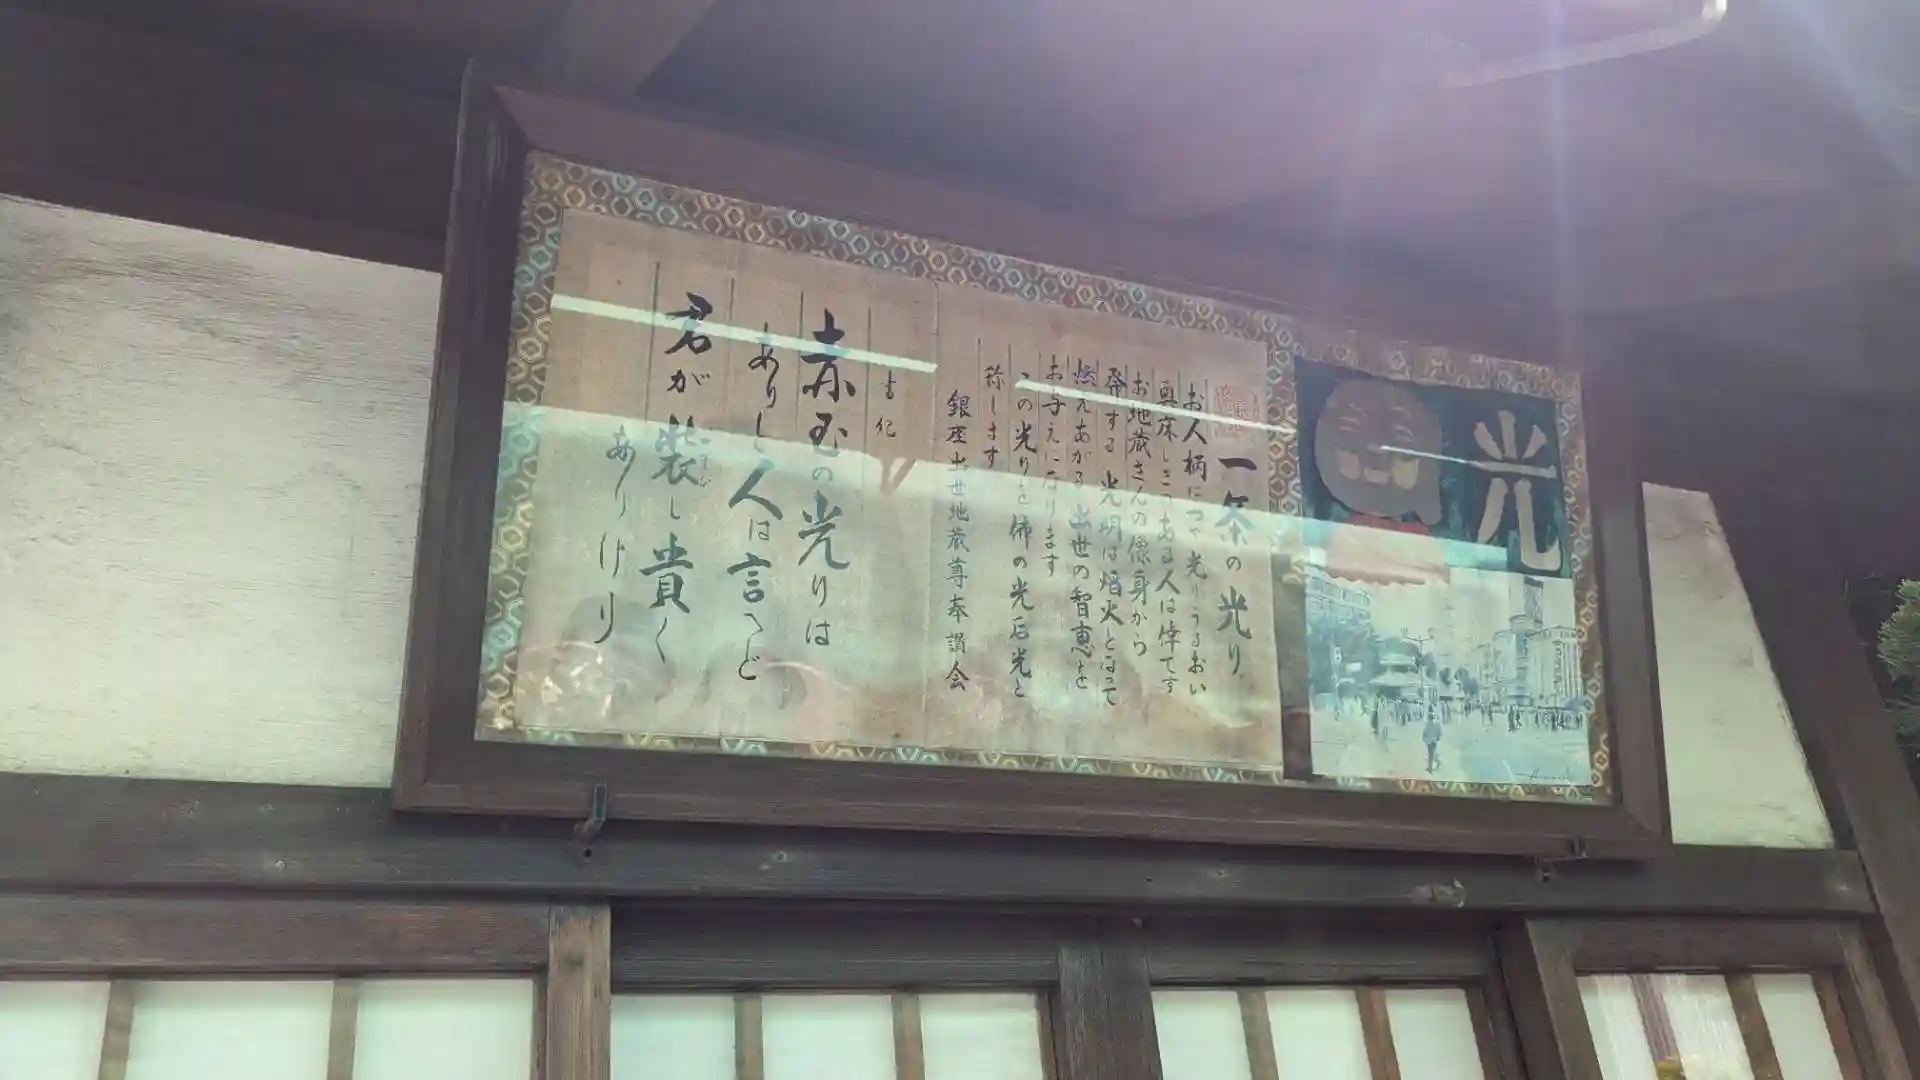 光
一条の光り
お人柄につや光りうるおい
奥床しさのある人は倖です
お地蔵さんの像身から
発する 光明は焔火となって
燃えあがる出世の智恵を
お与えになります
この光りを佛の光后光と
称します
銀座出世地蔵尊奉讃会
書紀
赤玉の光りは
ありと人は言へど
君が装し貴く
ありけり